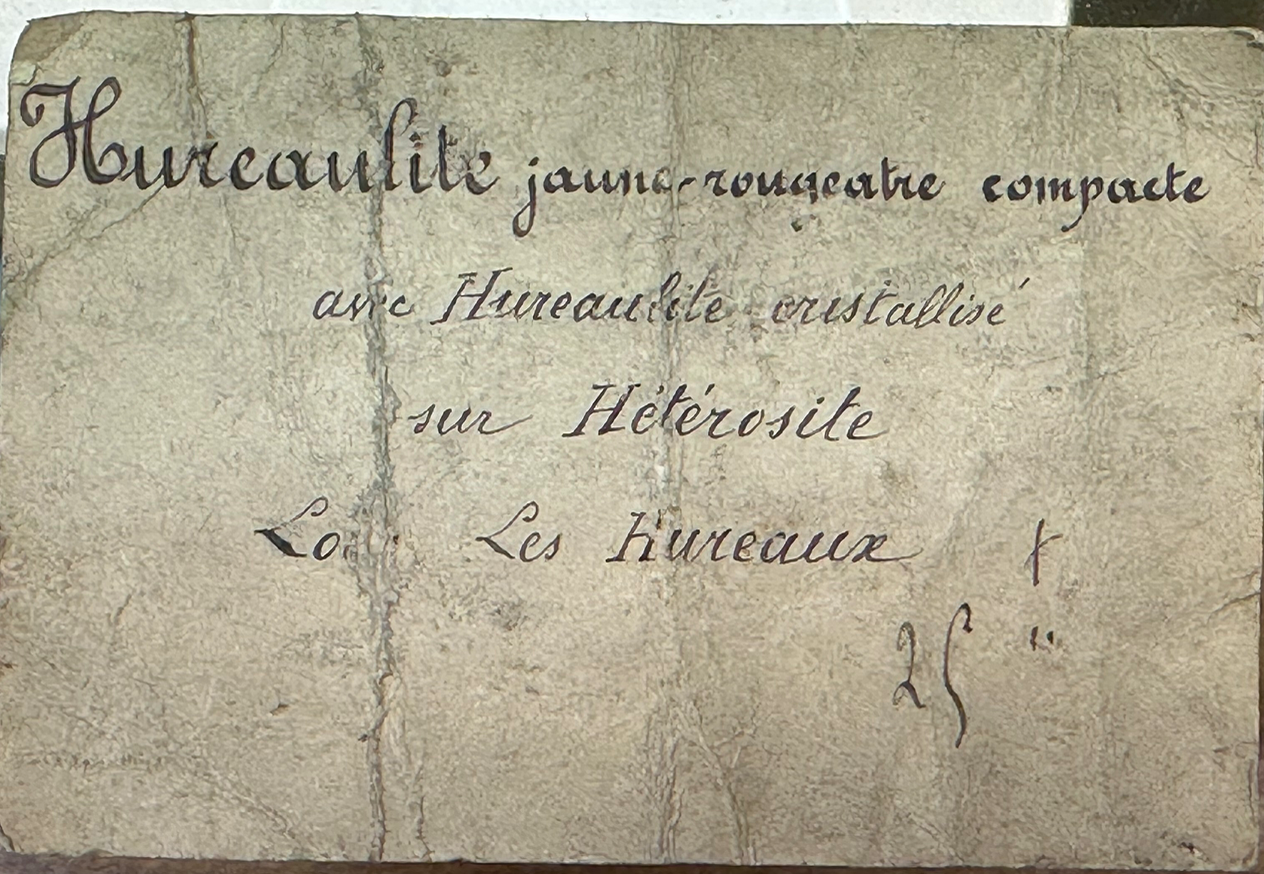 Hureaulite jaune-rougeatre compacte
avec Hureaulite cristallisé
sur Hétérosite
Les Hureaux
25